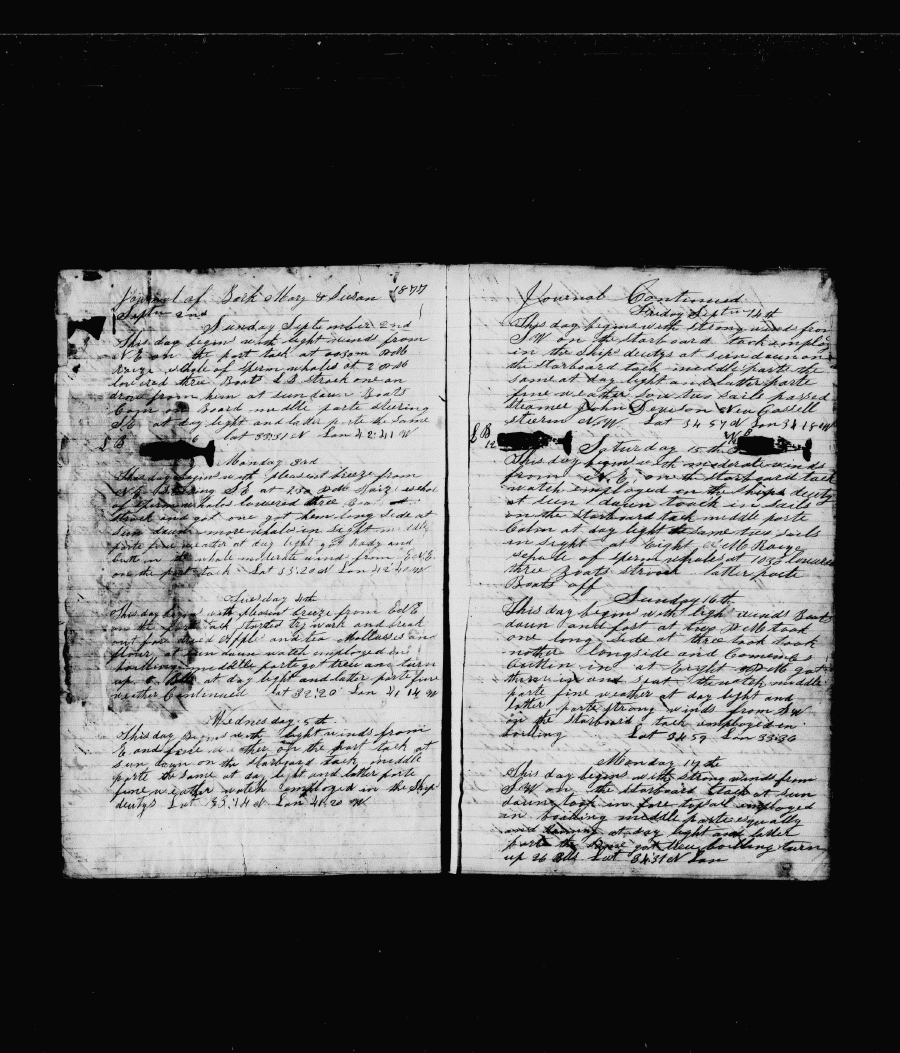 Journal of Bark Mary & Susan 1877
Septm 2nd
Sunday September 2nd
This day begins with light winds from
N E on the port tack at
Raize school of sperm whales at 2
lowered three Boats L B Struck one an
drew from him at sundown Boats
Com on Board middle parte steering
S E at day light and later parte the same
Lat 33:31 N Lon 42:41 W
L B
Monday 3rd
This day begins with pleasent breeze from
N E Stearing S E at 2 30 P M Raiz school
of sperm whales lowered three Boats
Struck and got one got him long side at
sun down more whales in sight middle
parte fine weather at day light got Rady and
cutt in the whale moderate wind from E N E
on the port tack Lat 33:20 N Lon 42:40 W
Tuesday 4th
This day begins with pleasent breeze from
on the tack Started try work and break
out for dried apple and tea Mollasses and
flour at sun down watch employed in
boilling middle parte got treu and turn
up Blls at day light and latter parte fine
weather Continued Lat 32:20 Lon 41 14 W
Wednesday 5th
This day begins with light winds from
E and fine weather on the port tack at
sun down on the Starboard tack middle
parte the same at day light and latter parte
fine weather watch employed in the Ship
deutys Lat 33:14 N Lon 41:20 W
Journal Continued
Friday Septm 14th
This day begins with strong winds from
S W on the starboard tack employ
in the ship deutys at sundown on
the starboard tack middle parte the
same at day light and latter parte
fine weather sails passed
steamer John
N W Lat 34 57 N Lon 34 15 W
L B
12
Saturday 15 th
This day begins with moderate winds
from N E on the starboard tack
watch employed on the ships deutys
at sun down toock in sails
on the starboard tack middle parte
Calm at day light the same two sails
in sight at Eight A M Raize
school of sperm whales at 1030 lowered
three Boats struck latter parte
Boats off
Sunday 16th
This day begins with ligh winds Boats
down and fast at two P M took
one long side at three tock took
nother alongside and Comemcs
cutten in at Eeight P M got
them in and the watch middle
parte fine weather at day light and
latter parte strong winds from S W
on the starboard tack employed in
boiling Lat 34 59 Lon 33:36
Monday 17th
This day begins with strong winds from
S W on the starboard tack at sun
daung took in fore topsal employed
in boilling middle parte esqually
and at day light and latter
parte the same got treu boilling turn
up 26 Blls Lat 34:31 N Lon